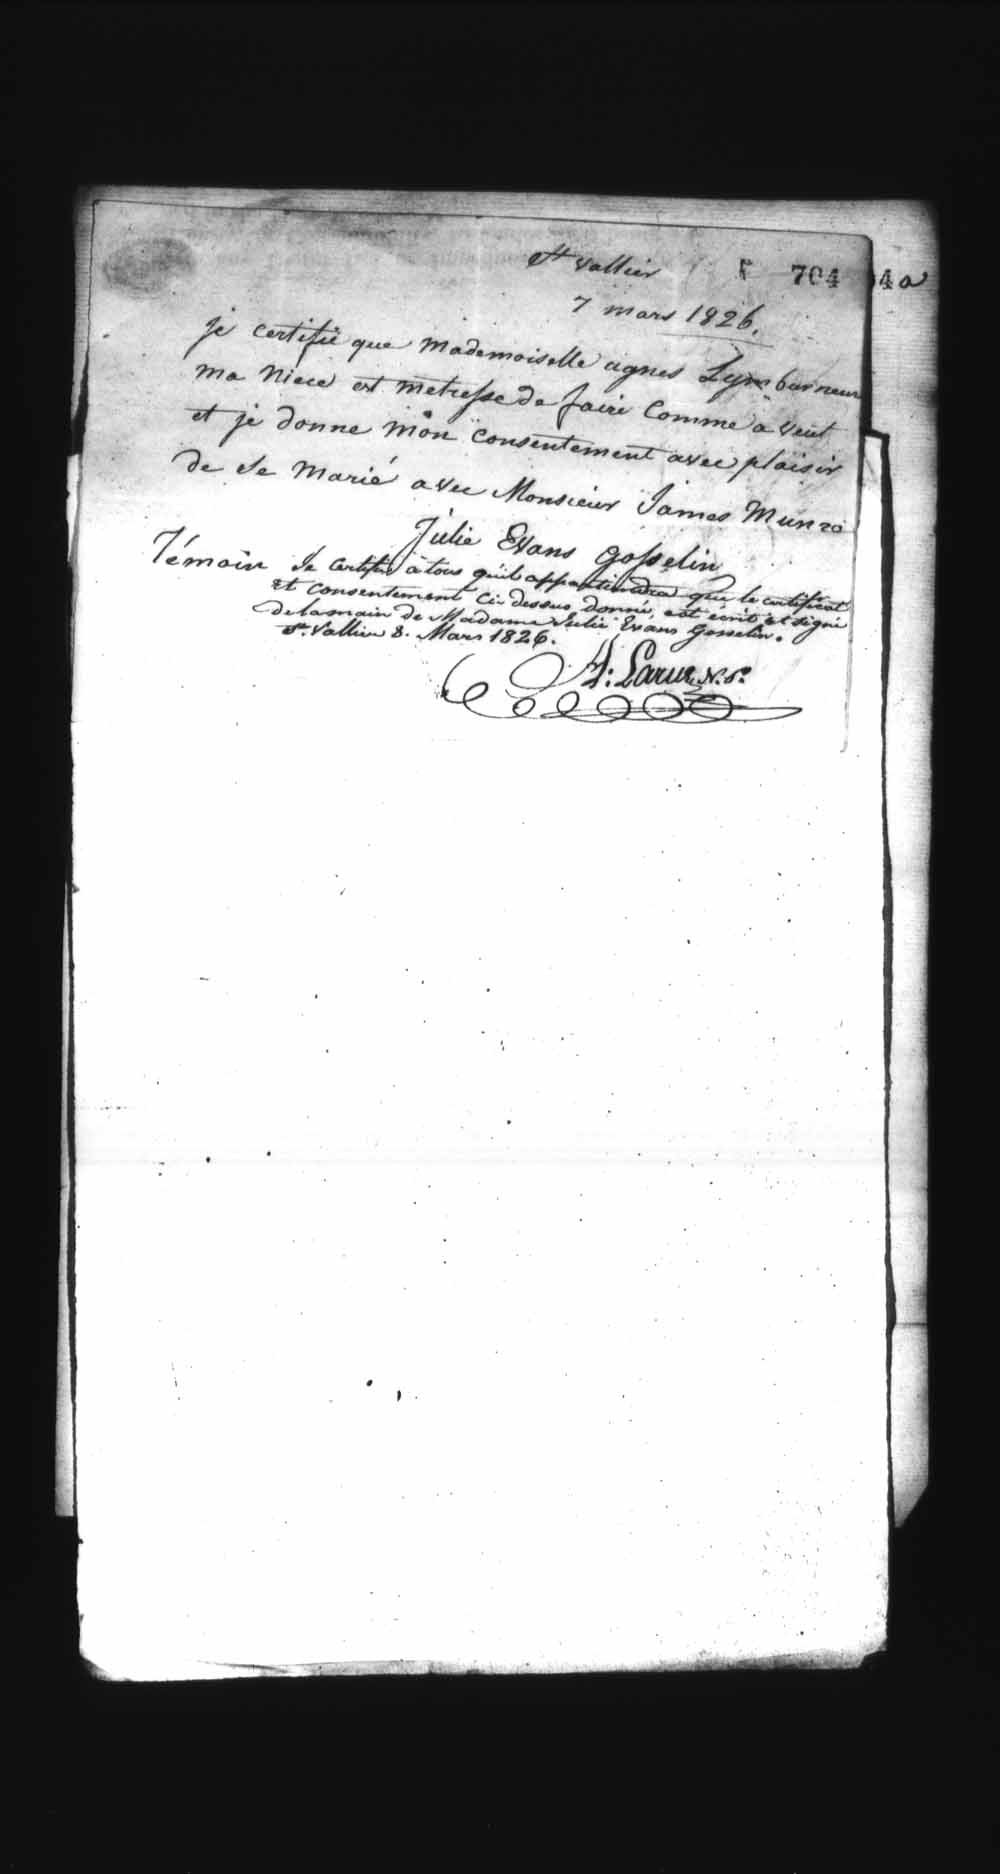 St vallier 704 4a
7 mars 1826.
je certifie que mademoiselle agnes Lymburneur
ma Niece est metresse de faire Comme a veut
et je donne mon consentement avec plaisir
de se marié avec Monsieur James Munro
Julie Evans Gosselin
Témoin Je Certifie à tous qu'il appartiendra que le certificat
et consentement ci-dessus donné, est écrit et signé
de la main de Madame Julie Evans Gosselin.
St. Vallier 8. Mars 1826.
Larue N.P.